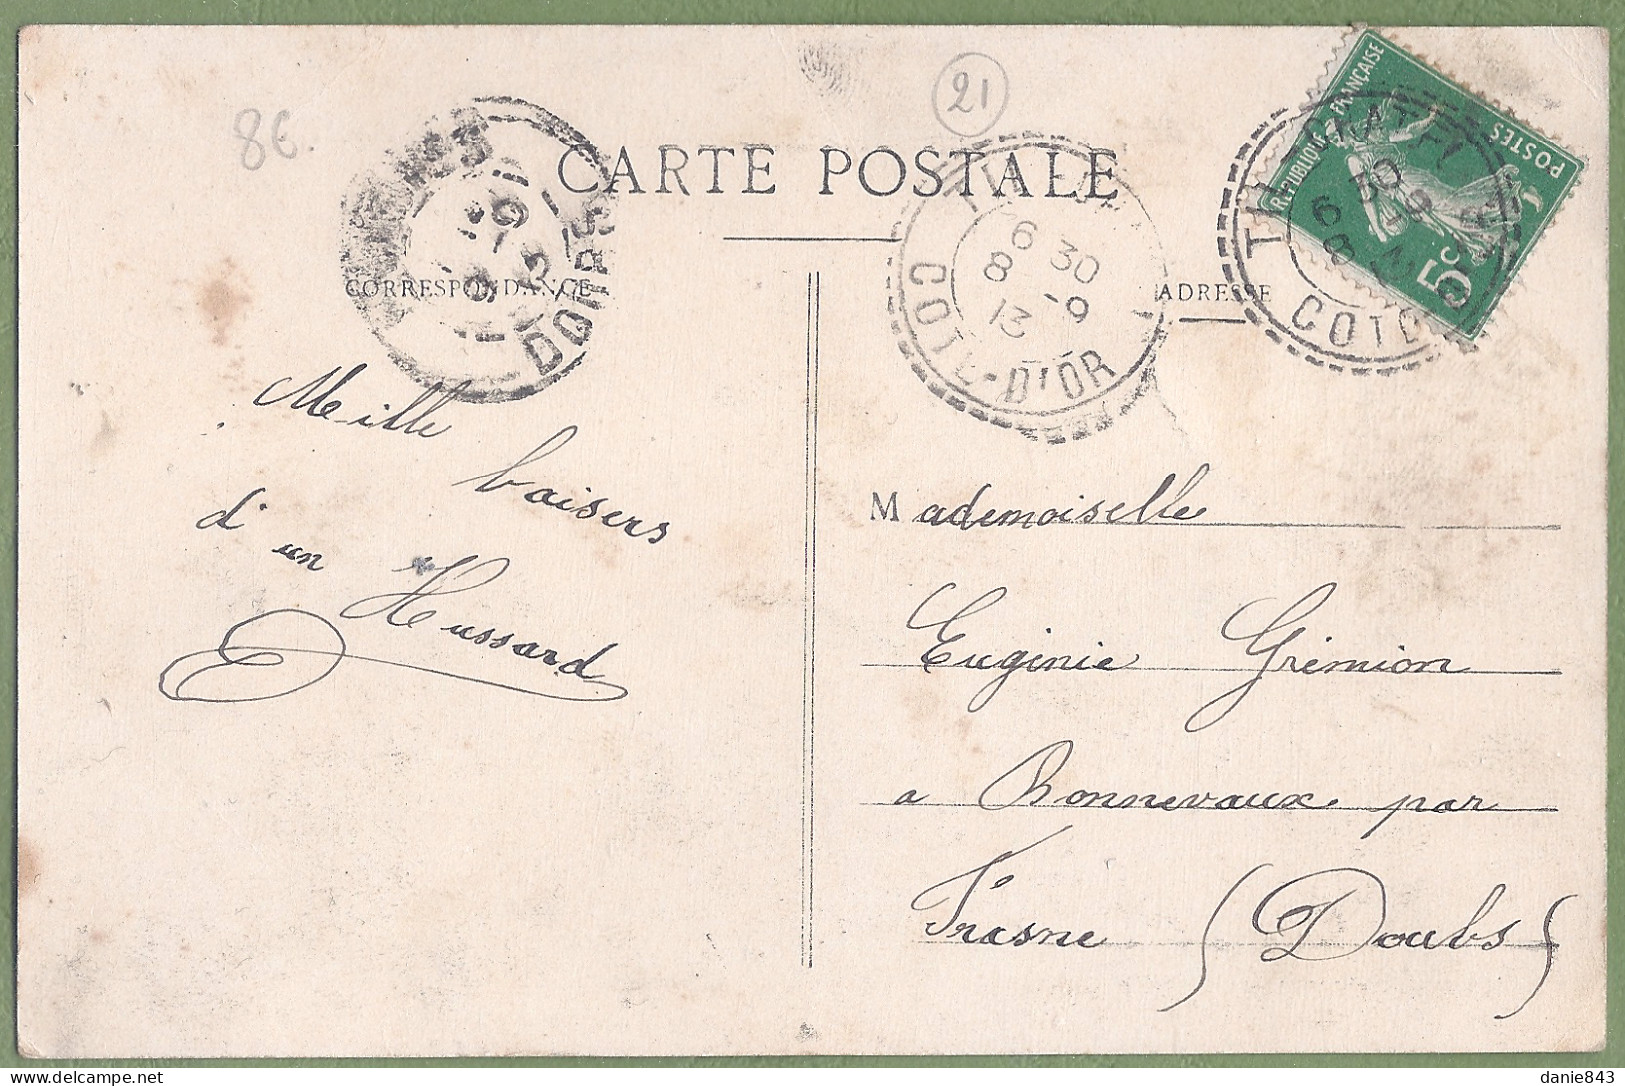 8€.
21
CARTE POSTALE
CORRESPONDANCE
ADRESSE
RÉPUBLIQUE FRANÇAISE
POSTES
5c
6 30
8 -9
13
COTE-D'OR
DOUBS
Mille
baisers
d'un Hussard
Mademoiselle
Euginie Grémion
a Bonnevaux par
Frasne (Doubs)
danie843